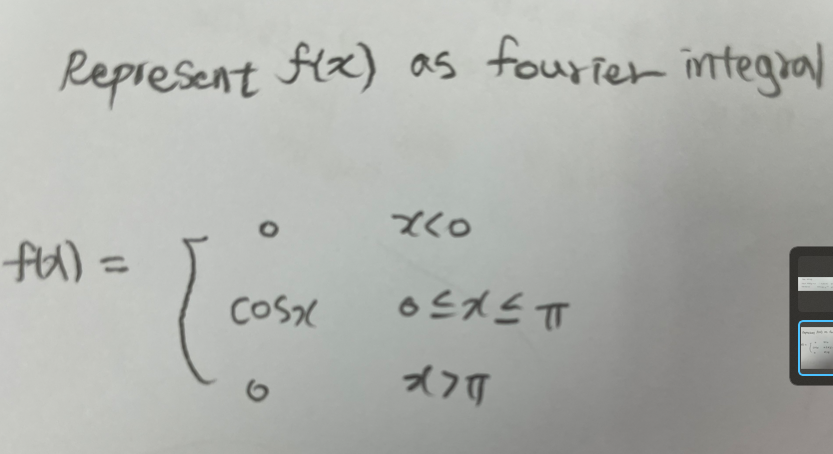 Represent f(x) as fourier integral
0 x<0
f(x) = { cosx 0≤x≤π
0 x>π